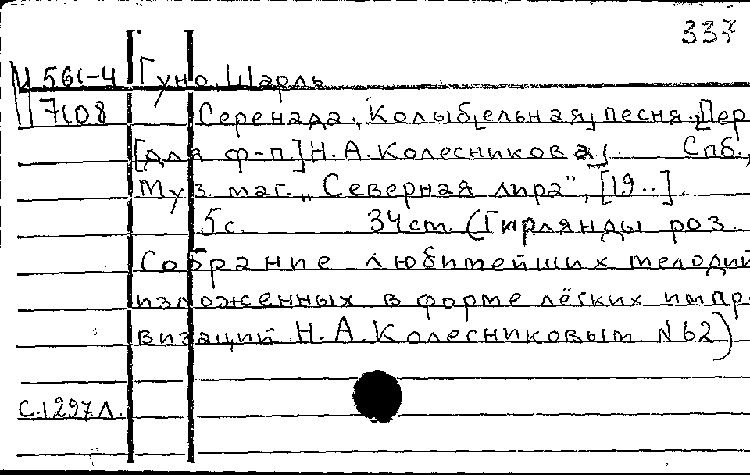 337
М 561-4 Гуно, Шарль
7608
Серенада. Колыб[ельная] песня. [Пер.
[для ф-п.] Н. А. Колесникова]. Спб.,
Муз. маг. „Северная лира", [19..].
5 с. 34 cm. (Гирлянды роз.
Собрание любимейших мелодий
изложенных в форме лёгких импро
визаций Н. А. Колесниковым N 62)
с.1297л.